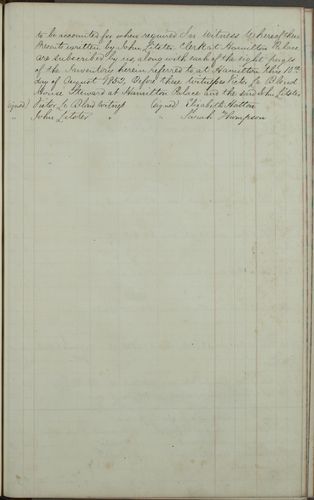 to be accounted for when required In Witness Whereof these
Presents written by John Litster, Clerk at Hamilton Palace
are subscribed by us, along with each of the eight pages
of the Inventory herein referred to at Hamilton this 10th
day of August 1852, before these Witnesses Victor Le Blond
House Steward at Hamilton Palace and the said John Litster
signed) Victor Le Blond Witness (signed Elizabeth Hutton
" John Litster " " Sarah Thompson